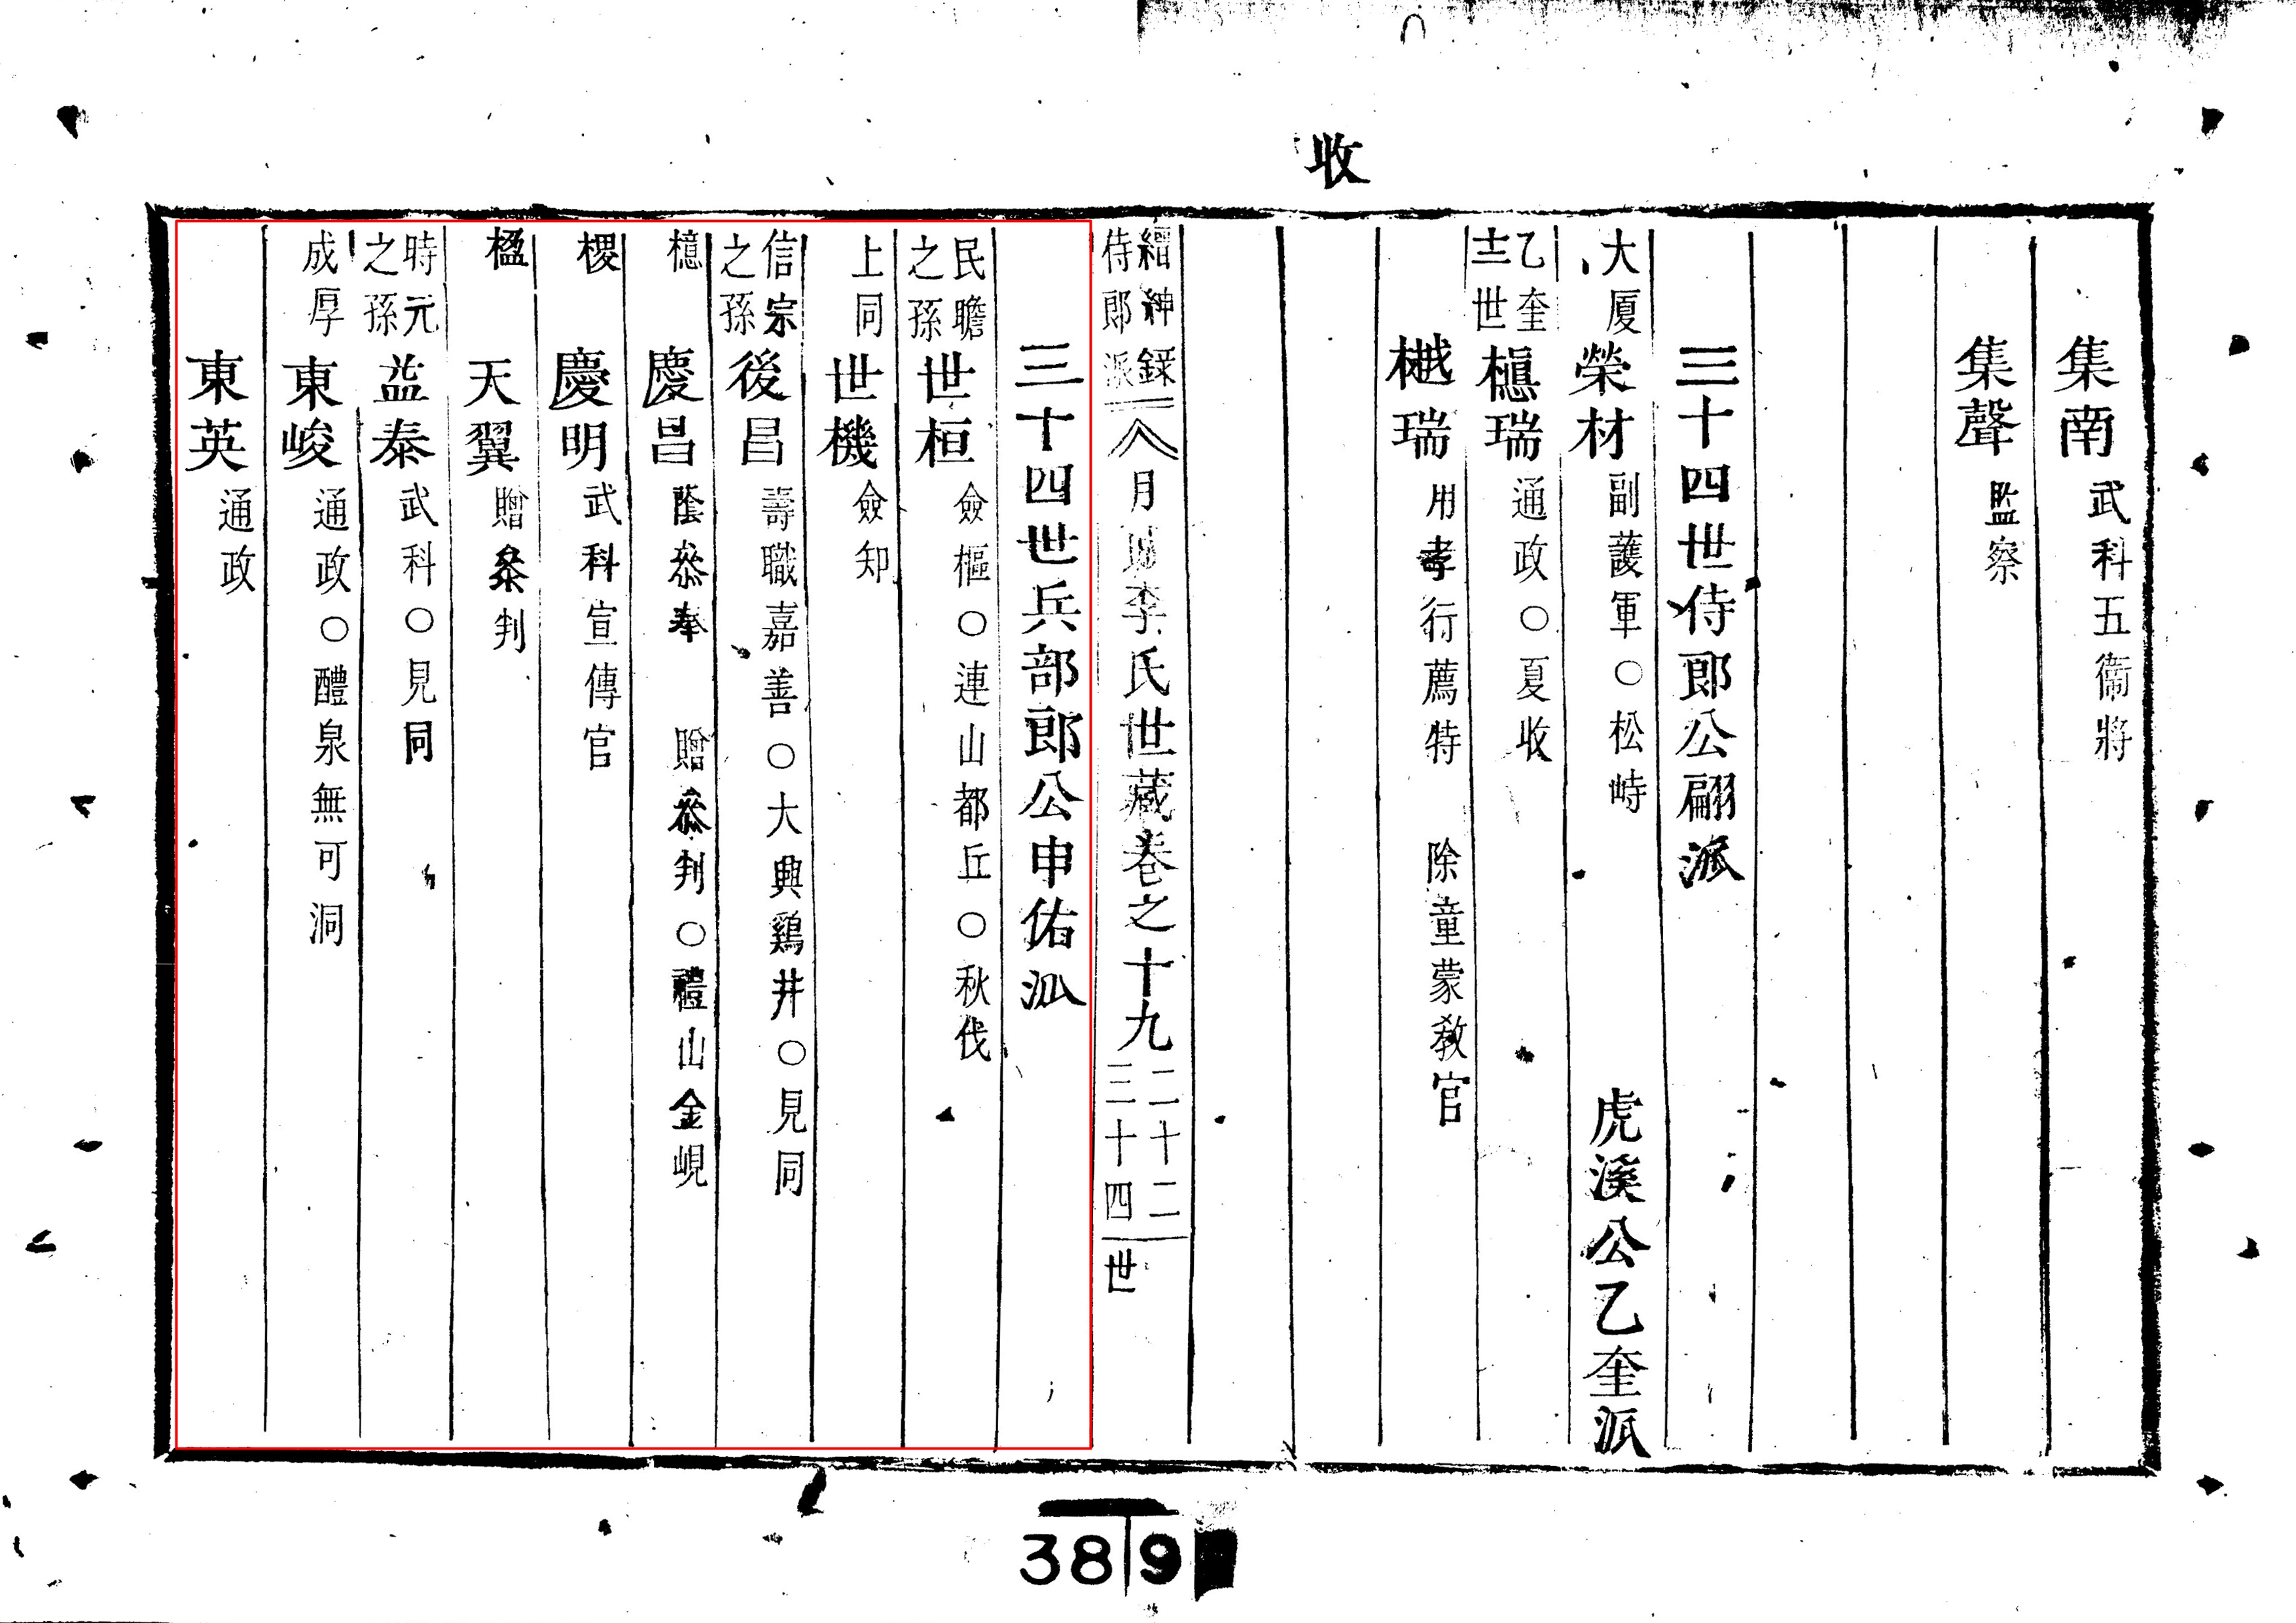 收
集南 武科五衞將
集聲 監察
三十四世侍郎公翩派
大厦 榮材 副護軍○松峙 虎溪公乙奎派
乙奎 十三世 櫶瑞 通政○夏收
樾瑞 用孝行薦特 除童蒙敎官
縉紳錄 侍郎派 八 月城李氏世蔵卷之十九 二十二 三十四世
三十四世兵部郎公申佑派
民瞻之孫 世桓 僉樞○連山都丘○秋伐
上同 世機 僉知
信宗之孫 後昌 壽職嘉善○大興鷄井○見同
檍 慶昌 蔭叅奉 贈叅判○禮山金峴
㮨 慶明 武科宣傳官
楹 天翼 贈叅判
時元之孫 益泰 武科○見同
成厚 東峻 通政○醴泉無可洞
東英 通政
389